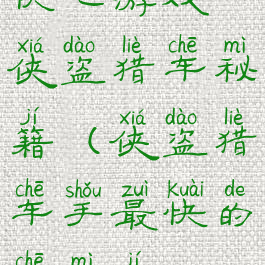 xiá dào liè chē mì
侠盗猎车秘
jí xiá dào liè
籍（侠盗猎
chē shǒu zuì kuài de
车手最快的
chē mì jí